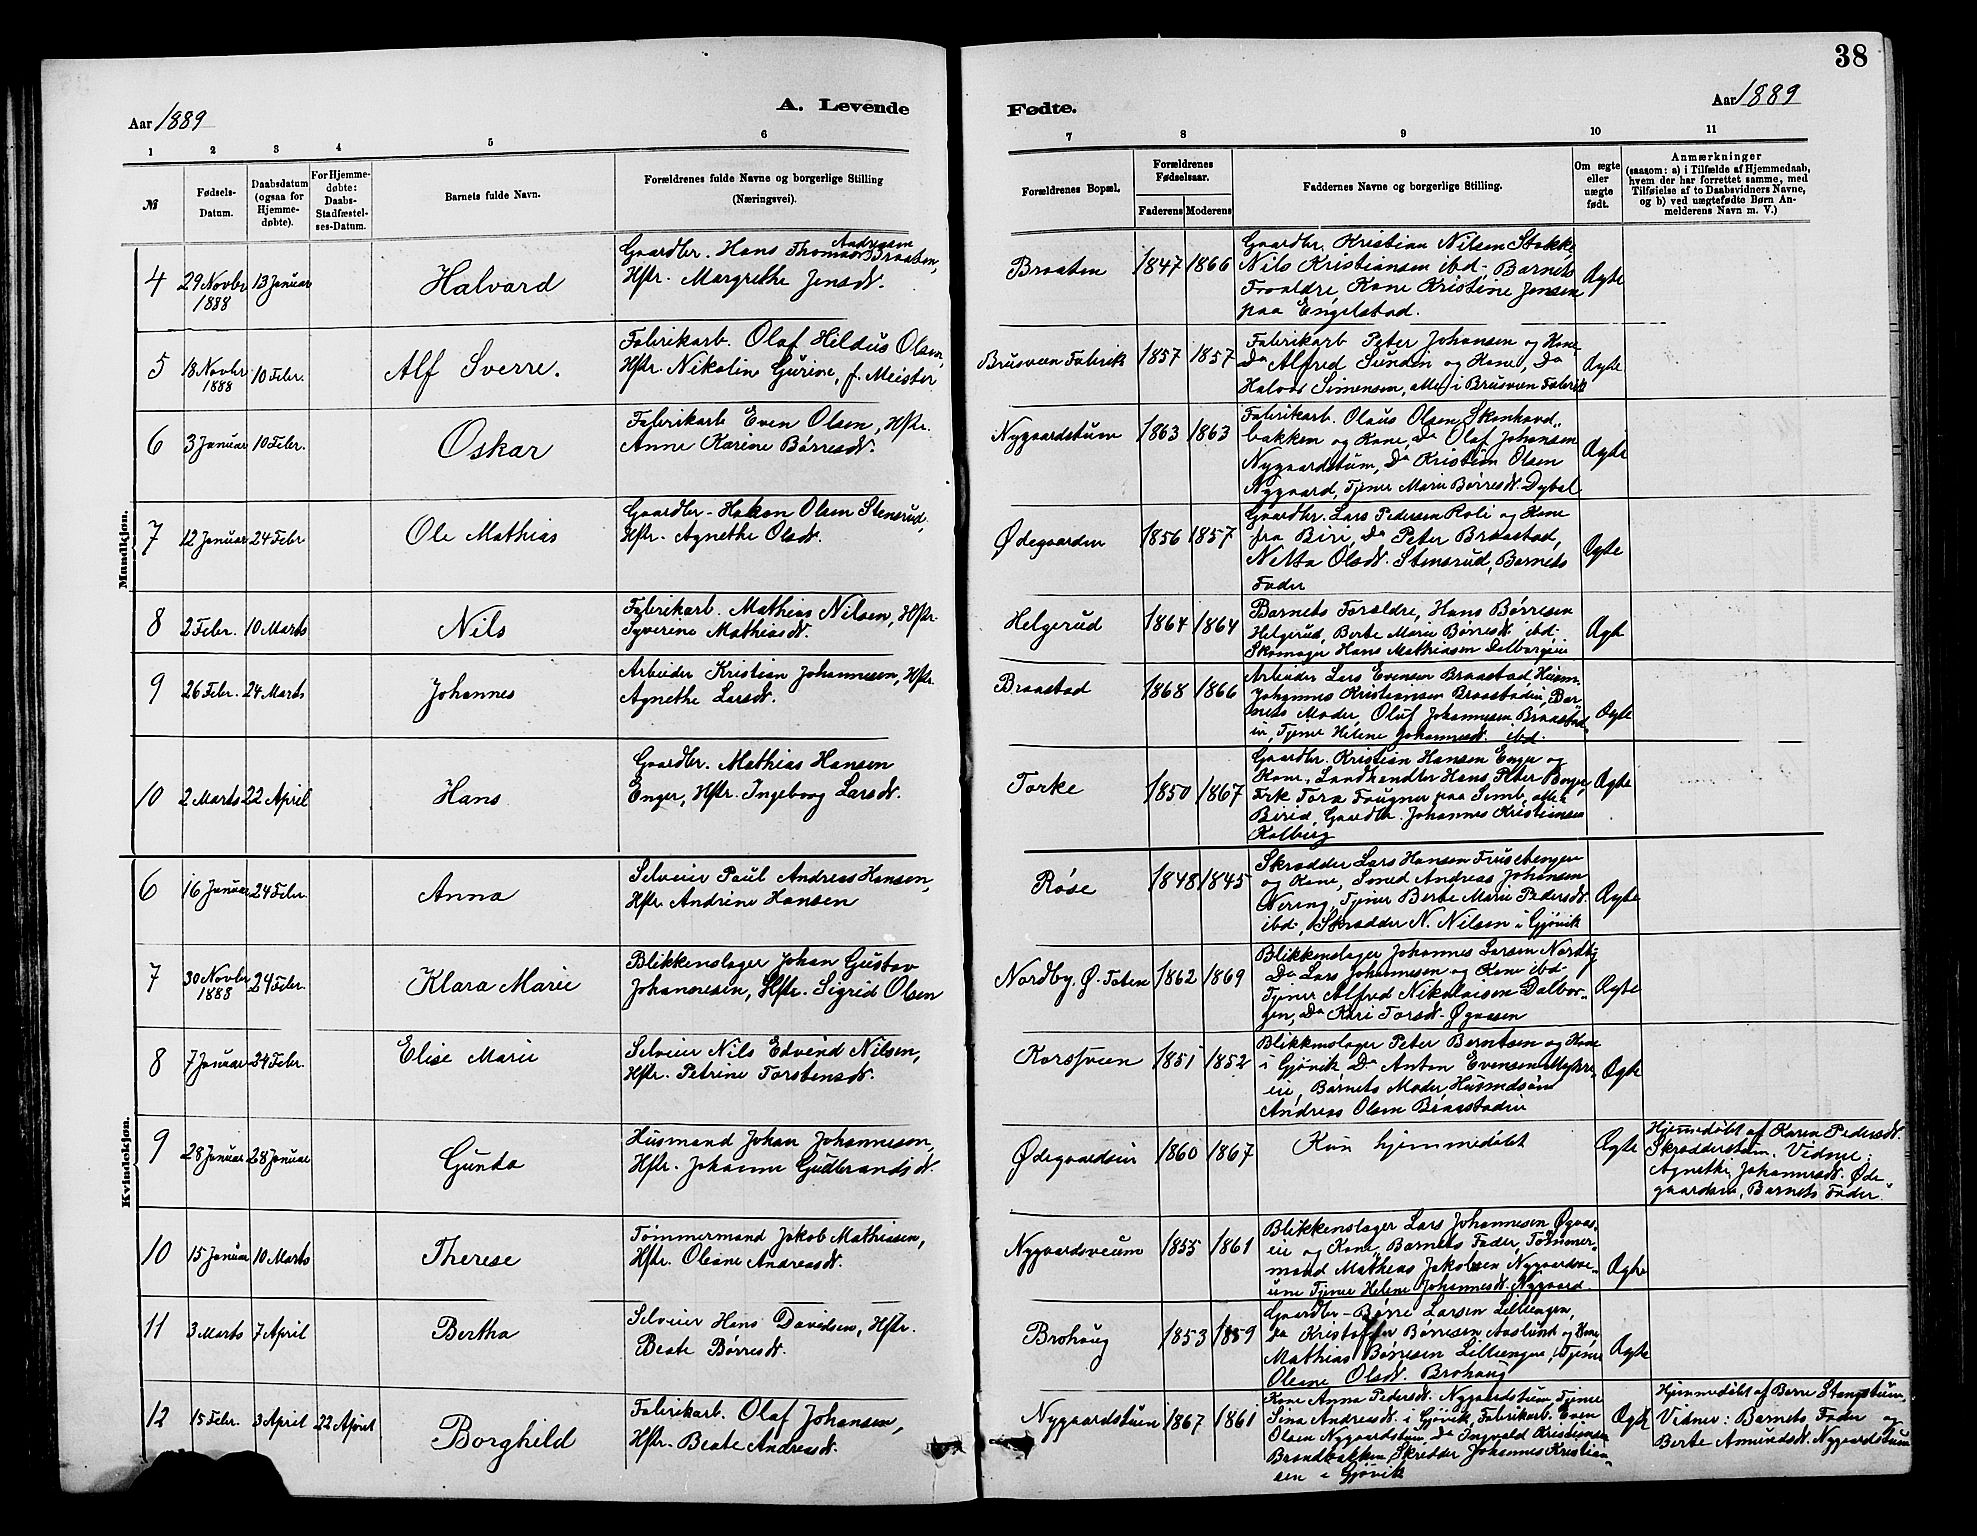 38
Aar 1889
A. Levende
Fødte.
Aar 1889
1 2 3 4 5 6 7 8 9 10 11
№
Fødsels-
Datum.
Daabsdatum
(ogsaa for
Hjemme-
døbte).
For Hjemme-
døbte:
Daabs-
Stadfæstel-
ses-Datum.
Barnets fulde Navn.
Forældrenes fulde Navne og borgerlige Stilling
(Næringsvei).
Forældrenes Bopæl.
Forældrenes
Fødselsaar.
Faderens Moderens
Faddernes Navne og borgerlige Stilling.
Om ægte
eller
uægte
født.
Anmærkninger
(saasom: a) i Tilfælde af Hjemmedaab,
hvem der har forrettet samme, med
Tilføielse af to Daabsvidners Navne,
og b) ved uægtefødte Børn An-
melderens Navn m. V.)
Mandkjøn.
4
29 Novbr
1888
13 Januar
Halvard
Andreasen
Gaardbr. Hans Thomas Braaten,
Hstr. Margrethe Jensd.
Braaten
1847 1866
Gaardbr. Kristian Nilsen Stokke,
Nils Kristiansen ibd., Barnets
Forældre, Kone Kristine Jensen
paa Engelstad.
Ægte
5
18 Novbr
1888
10 Febr.
Alf Sverre.
Fabrikarb. Olaf Hildus Olsen,
Hstr. Nikolin Gurine, f. Meister
Brusveen Fabrik
1857 1857
Fabrikarb Peter Johansen og Kone
Do Alfred Sundin og Kone, Do
Halvor Simensen, alle i Brusveen Fabrik
Ægte
6
3 Januar
10 Febr.
Oskar
Fabrikarb Even Olsen, Hstr.
Anne Karine Børresd.
Nygaardstuen
1863 1863
Fabrikarb. Olaus Olsen Skonhovd-
bakken og Kone, Do Olaf Johansen
Nygaardstuen, Do Kristian Olsen
Nygaard, Tjener Marie Børresd. Dybal
Ægte
7
12 Januar
24 Febr
Ole Mathias
Gaardbr. Hakon Olsen Stensrud,
Hstr. Agnethe Olsd.
Ødegaarden
1856 1857
Gaardbr. Lars Pedersen Roli og Kone
fra Biri, Do Peter Braastad,
Netta Olsd. Stensrud, Barnets
Fader
Ægte
8
2 Febr.
10 Marts
Nils
Fabrikarb. Mathias Nilsen, Hstr.
Syverine Mathiasd.
Helgerud
1864 1864
Barnets Forældre, Hans Børresen
Helgerud, Berte Marie Børresd. ibd.
Skomager Hans Mathiasen Dalborgeie
Ægte
9
26 Febr.
24 Marts
Johannes
Arbeider Kristian Johannesen, Hstr.
Agnethe Larsd.
Braastad
1868 1866
Arbeider Lars Evensen Braastad, Husm.
Johannes Kristiansen Braastadeie, Bar-
nets Moder, Oluf Johannesen Braastad-
eie, Tjener Helene Johannesd. ibd.
Ægte
10
2 Marts
22 April
Hans
Gaardbr. Mathias Hansen
Enger, Hstr. Ingeborg Larsd.
Torke
1850 1867
Gaardbr. Kristian Hansen Enger og
Kone, Landhandler Hans Peter Enger,
Frk Tora Fougner paa Semb, alle i
Birid, Gaardbr. Johannes Kristiansen
Kolberg
Ægte
Kvindekjøn.
6
16 Januar
24 Febr.
Anna
Selveier Paul Andreas Hansen,
Hstr. Andrine Hansen
Røse
1848 1845
Skrædder Lars Hansen Fruestengen
og Kone, Smed Andreas Johansen
Nering, Tjener Berte Marie Pedersd.
ibd., Skrædder N. Nilsen i Gjøvik
Ægte
7
30 Novbr
1888
24 Febr.
Klara Marie
Blikkenslager Johan Gustav
Johannesen, Hstr. Sigrid Olsen
Nordby, Ø. Toten
1862 1869
Blikkenslager Johannes Larsen Nordby
Do Lars Johannesen og Kone ibd
Tjener Alfred Nikolaisen Dalbor-
gen, Do Kari Torsd. Øgaasen
Ægte
8
7 Januar
24 Febr.
Elise Marie
Selveier Nils Edvind Nilsen,
Hstr. Petrine Torstensd.
Korsveien
1851 1852
Blikkenslager Peter Berntsen og Kone
i Gjøvik Do Anton Evensen
eie, Barnets Moder Husmdsøn
Andreas Olsen Braastadeie
Ægte
9
28 Januar
28 Januar
Gunda
Husmand Johan Johannesen,
Hstr. Johanne Gudbrandsd
Ødegaardseie
1860 1867
Kun hjemmedøbt
Ægte
Hjemmedøbt af Karen Pedersd.
Skrædderstuen. Vidner:
Agnethe Johannesd. Øde-
gaardseie, Barnets Fader.
10
15 Januar
10 Marts
Therese
Tømmermand Jakob Mathiasen,
Hstr. Oleane Andreasd.
Nygaardsveum
1855 1861
Blikkenslager Lars Johannesen Øgaas-
eie og Kone, Barnets Fader, Tømmer-
mand Mathias Jakobsen Nygaardsve-
ume Tjener Helene Johannesd. Nygaard
Ægte
11
3 Marts
7 April
Bertha
Selveier Hans Davidsen, Hstr.
Beate Børresd.
Brohaug
1853 1859
Gaardbr. Børre Larsen Lillengen,
Do Kristoffer Børresen Aaslund og Kone
Mathias Børresen Lillengen, Tjener
Oleane Olsd. Brohaug
Ægte
12
15 Febr.
3 April
22 April
Borghild
Fabrikarb. Olaf Johansen,
Hstr. Beate Andreasd.
Nygaardstuen
1867 1861
Kone Anna Pedersd. Nygaardstuen, Tjener
Sina Andreasd. i Gjøvik, Fabrikarb. Even
Olsen Nygaardstuen, Do Ingvald Kristiansen
Brandbakken, Skrædder Johannes Kristian-
sen i Gjøvik
Ægte
Hjemmedøbt af Børre Stangstuen,
Vidner: Barnets Fader og
Berte Amundsd. Nygaardstuen